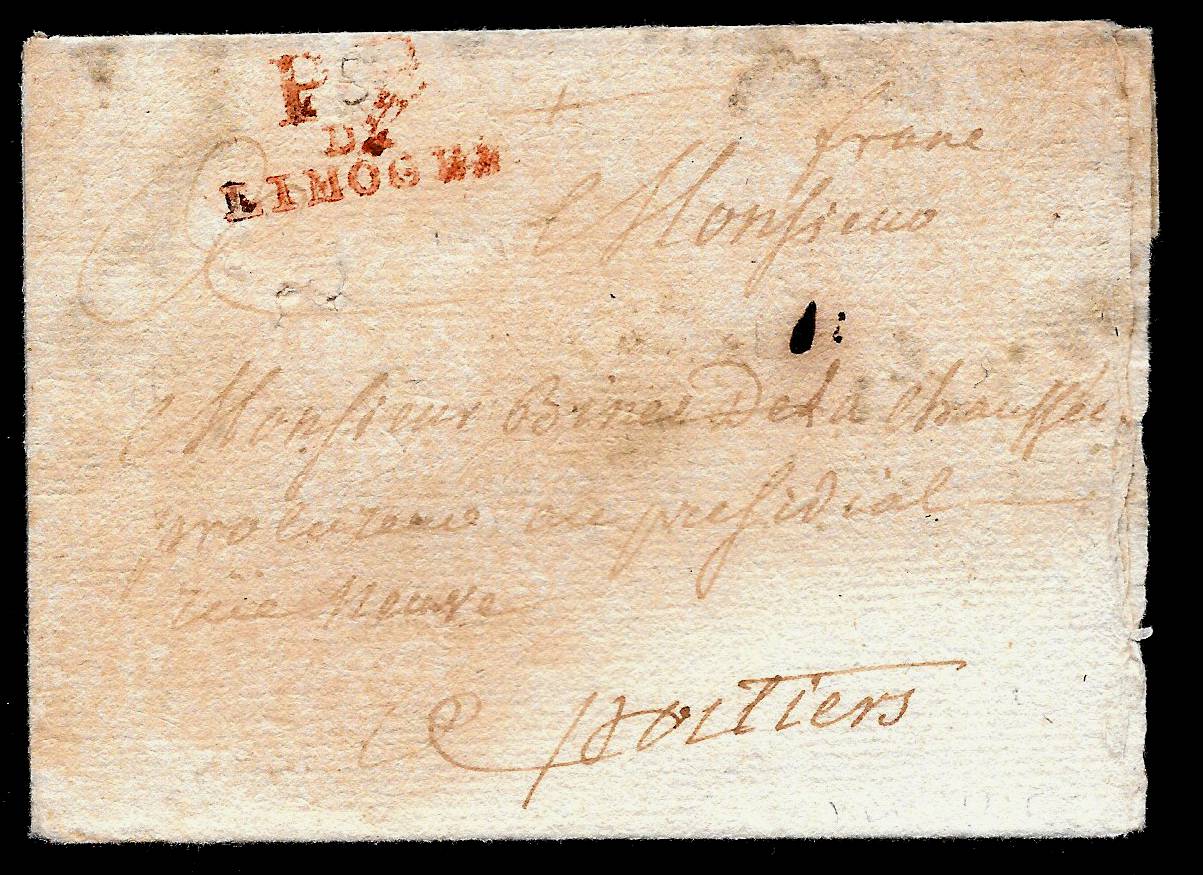 P
DE
LIMOGES
franc
Monsieur
Monsieur De la Chaussée
procureur au presidial
rüe Neuve
a poitiers